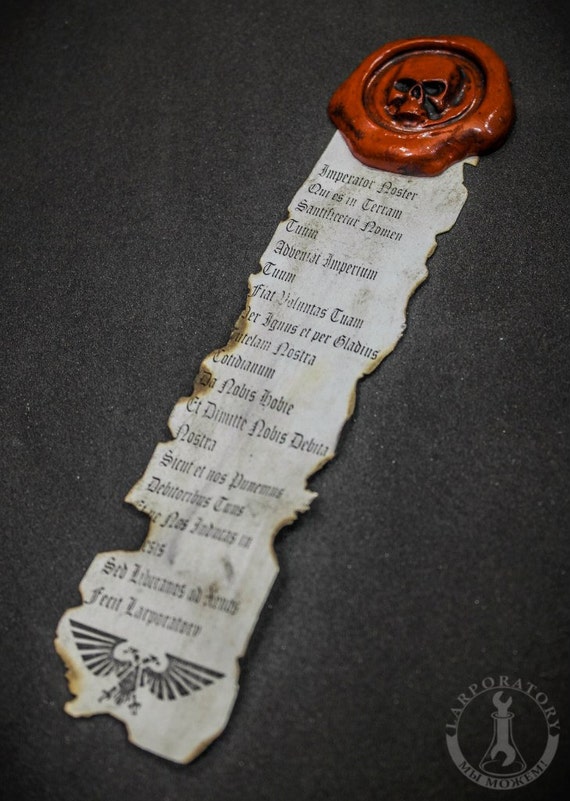 Imperator Noster
Qui es in Terram
Santificetur Nomen
Tuum
Adveniat Imperium
Tuum
Fiat Voluntas Tuam
Per Ignus et per Gladius
Tutelam Nostra
Cotidianum
Da Nobis Hobie
Et Dimitte Nobis Debita
Nostra
Sicut et nos Punemus
Debitoribus Tuus
Nos Inducas in
Sed Liberanos ad
Fecit Larporatory
LARPORATORY
МЫ МОЖЕМ!